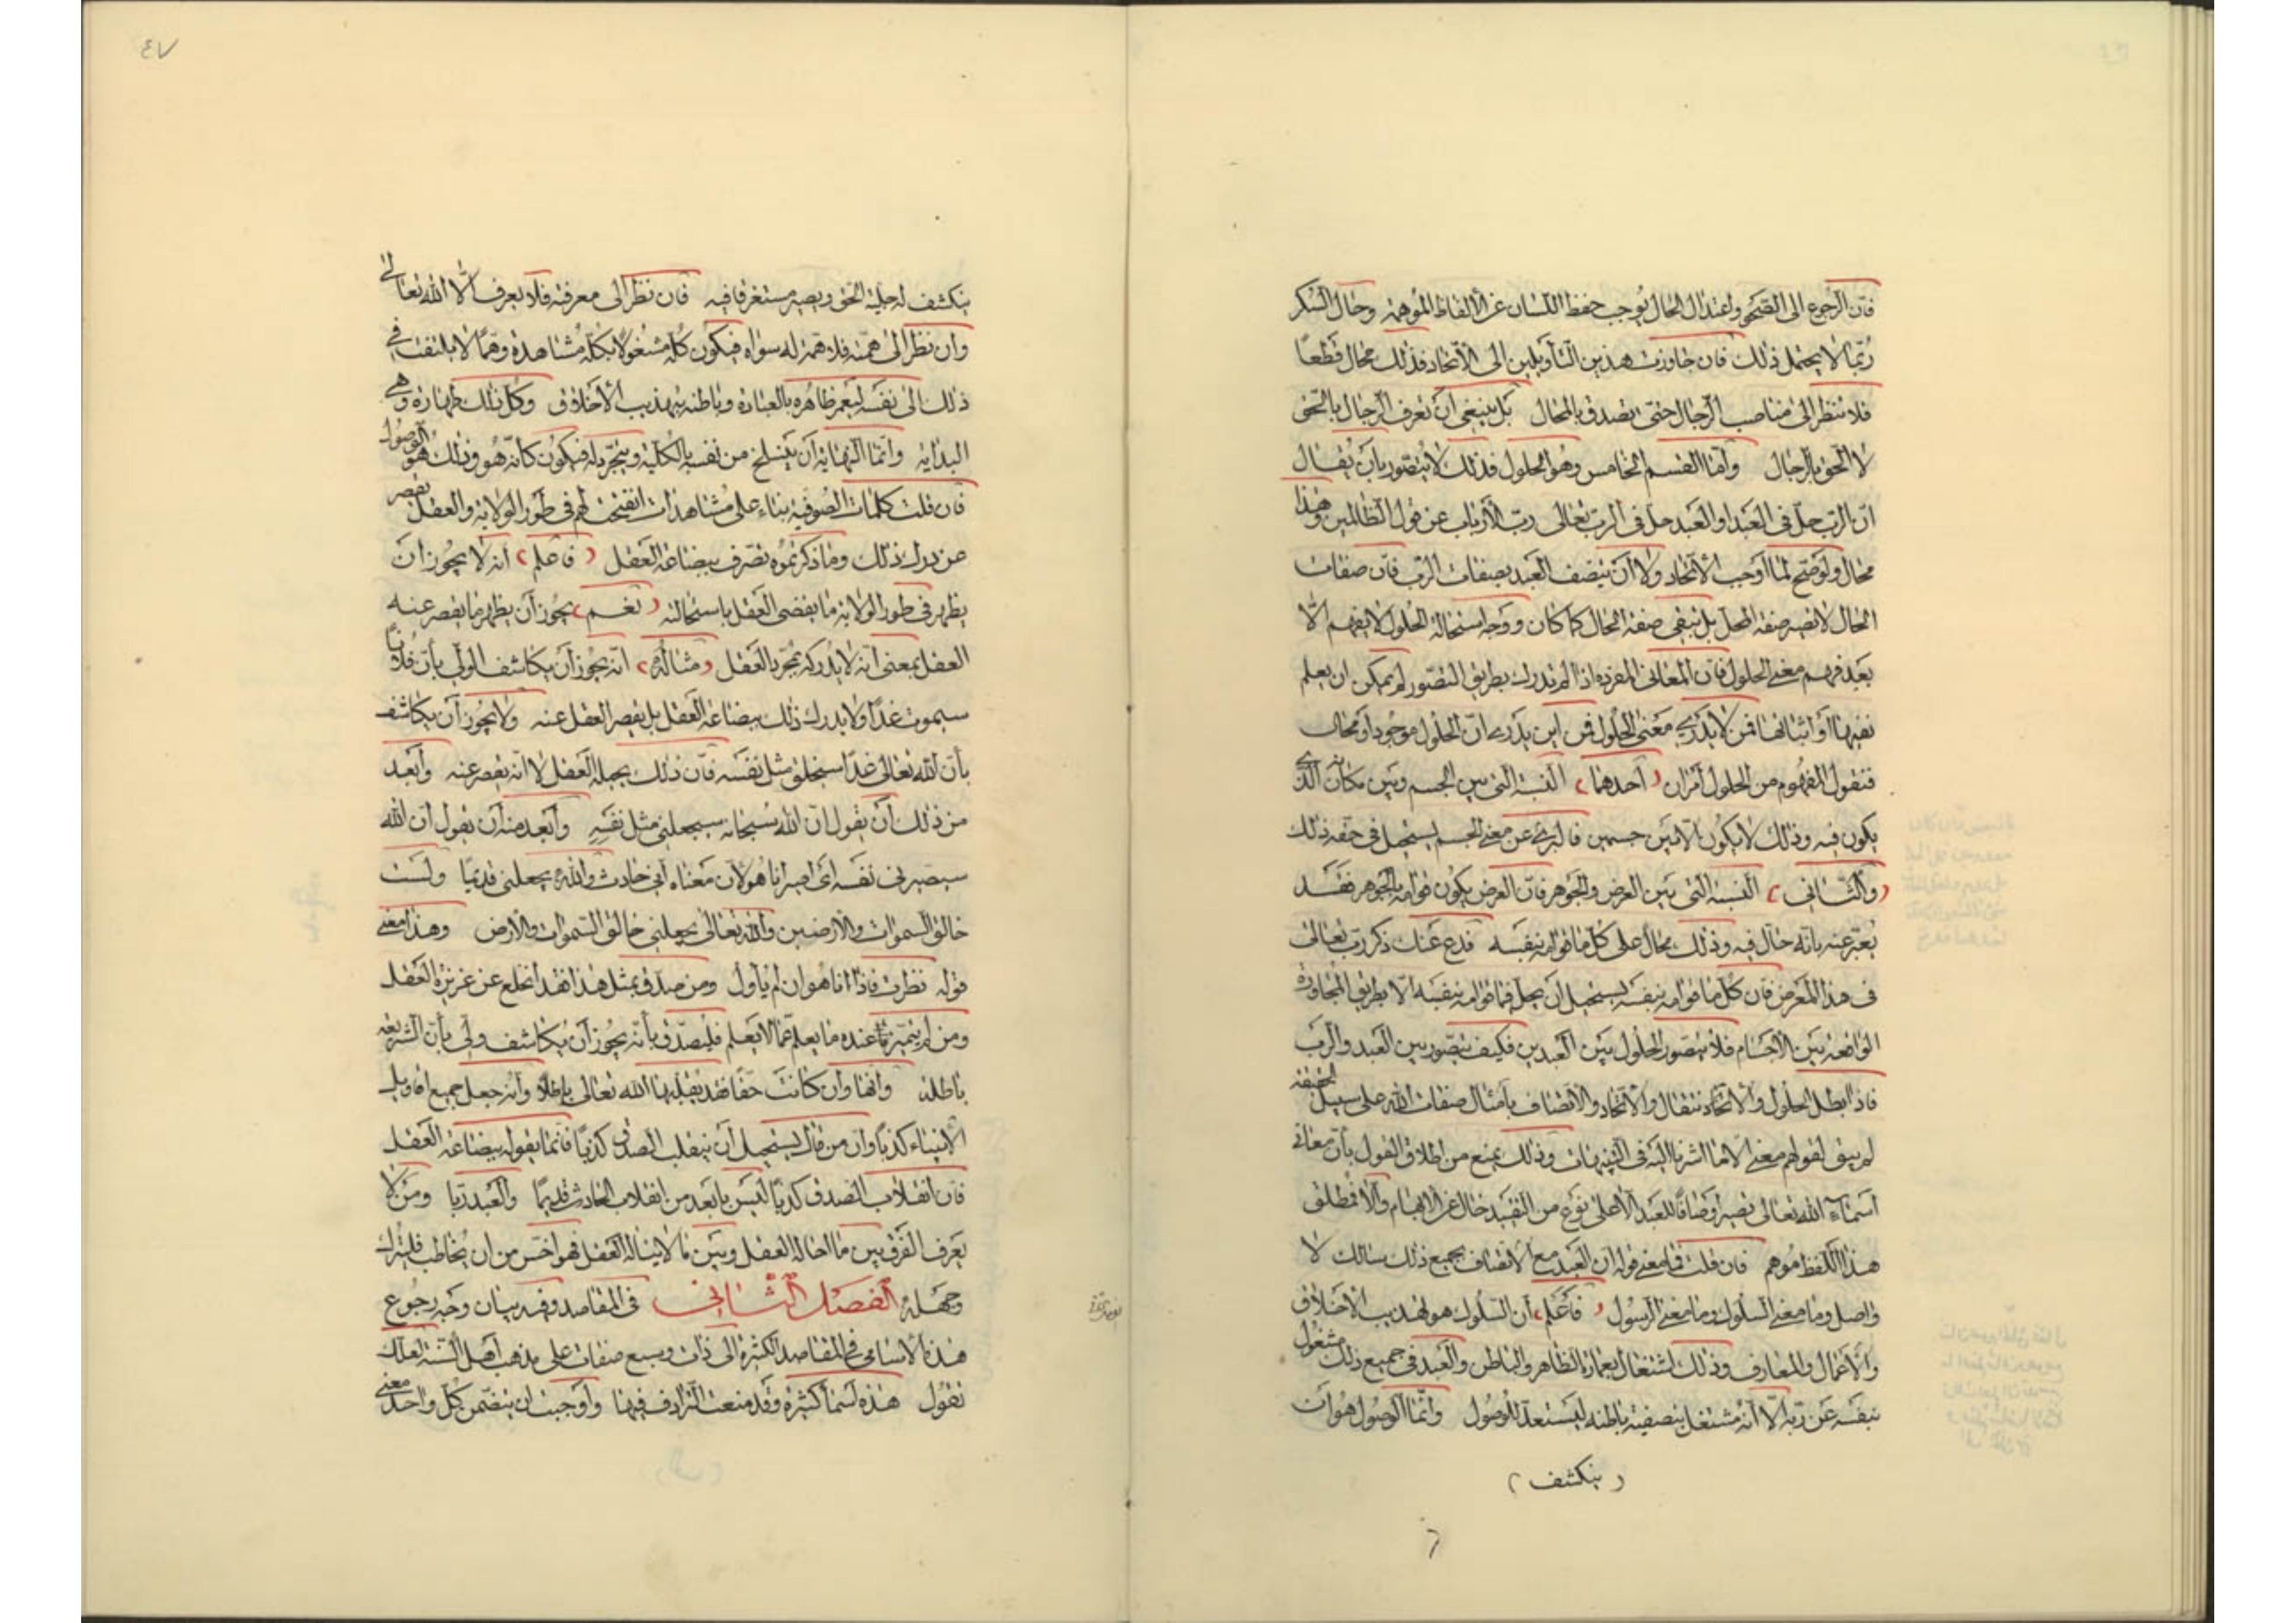 فان الرجوع الى الصحو واعتدال الحال يوجب حفظ اللسان عن الالفاظ الموهمة وحال السكر
ربما لا يحتمل ذلك فان جاوزت هذين التأويلين الى الاتحاد فذلك محال قطعا
فلا تنظر الى مناصب الرجال حتى تصدق بالمحال بل ينبغى ان تعرف الرجال بالحق
لا الحق بالرجال وأما القسم الخامس وهو الحلول فذلك لا يتصور بان يقال
ان الرب حل فى العبد او العبد حل فى الرب تعالى رب الارباب عن قول الظالمين وهذا
محال ولو صح لما اوجب الاتحاد ولا ان يتصف العبد بصفات الرب فان صفات
الحال لا تصير صفة المحل بل تبقى صفة الحال كما كان ووجه استحالة الحلول لا يفهم الا
بعد فهم معنى الحلول فان المعانى المفردة اذا لم تدرك بطريق التصور لم يمكن ان يعلم
نفيها او اثباتها فمن لا يدرى معنى الحلول فمن اين يدرى ان الحلول موجود او محال
فنقول المفهوم من الحلول امران (احدهما) النسبة التى بين الجسم وبين مكانه الذى
يكون فيه وذلك لا يكون الا بين جسمين فالبرئ عن معنى الجسم يستحيل فى حقه ذلك
(والثانى) النسبة التى بين العرض والجوهر فان العرض يكون قوامه بالجوهر فقد
يعبر عنه بانه حال فيه وذلك محال على كل ما قوامه بنفسه فدع عنك ذكر رب تعالى
فى هذا المعرض فان كل ما قوامه بنفسه يستحيل ان يحل فيما قوامه بنفسه الا بطريق المجاورة
الواقعة بين الاجسام فلا يتصور الحلول بين العبدين فكيف يتصور بين العبد والرب
فاذا بطل الحلول والانتقال والاتحاد والاتصاف بامثال صفات الله على سبيل الحقيقة
لم يبق لقولهم معنى الا ما اشرنا اليه فى التنبيهات وذلك يمنع من اطلاق القول بأن معانى
اسماء الله تعالى تصير اوصافا للعبد الا على نوع من التقييد خال عن الابهام والا فمطلق
هذا اللفظ موهم فان قلت فما معنى قوله ان العبد مع الاتصاف بجميع ذلك سالك لا
واصل وما معنى السلوك وما معنى الوصول (فاعلم) ان السلوك هو تهذيب الاخلاق
والاعمال والمعارف وذلك اشتغال بعمارة الظاهر والباطن والعبد فى جميع ذلك مشغول
بنفسه عن ربه الا انه مشتغل بتصفية باطنه ليستعد للوصول وانما الوصول هو ان
(ينكشف)
٤٧
ينكشف له جلية الحق ويصير مستغرقا فيه فان نظر الى معرفته فلا يعرف الا الله تعالى
وان نظر الى همته فلا همة له سواه فيكون كله مشغولا بكله مشاهدة وهما لا يلتفت فى
ذلك الى نفسه ليعمر ظاهره بالعبادة وباطنه بتهذيب الاخلاق وكل ذلك طهارة وهى
البداية وانما النهاية ان ينسلخ من نفسه بالكلية ويتجرد له فيكون كانه هو وذلك هو الوصول
فان قلت كلمات الصوفية بناء على مشاهدات انفتحت لهم فى طور الولاية والعقل يقصر
عن درك ذلك وما ذكرتموه تصرف ببضاعة العقل (فاعلم) انه لا يجوز ان
يظهر فى طور الولاية ما يقضى العقل باستحالته (نعم) يجوز ان يظهر ما يقصر عنه
العقل بمعنى انه لا يدركه بمجرد العقل (مثاله) انه يجوز ان يكاشف الولى بأن فلانا
سيموت غدا ولا يدرك ذلك ببضاعة العقل بل يقصر العقل عنه ولا يجوز ان يكاشف
بأن الله تعالى غدا سيخلق مثل نفسه فان ذلك يحيله العقل لا انه يقصر عنه وأبعد
من ذلك ان يقول ان الله سبحانه سيجعلنى مثل نفسه وأبعد منه ان يقول ان الله
سيصيرنى نفسه اى اصير انا هو لان معناه انى حادث والله يجعلنى قديما ولست
خالق السموات والارضين والله تعالى يجعلنى خالق السموات والارض وهذا معنى
قوله نظرت فاذا انا هو ان لم يأول ومن صدق بمثل هذا فقد انخلع عن غريزة العقل
ومن لم يتميز عنده ما يعلم عما لا يعلم فليصدق بأنه يجوز ان يكاشف ولى بأن الشريعة
باطلة وانها وان كانت حقا فقد يقلبها الله تعالى باطلا وانه جعل جميع اقاويل
الانبياء كذبا وان من قال يستحيل ان ينقلب الصدق كذبا فانما يقوله ببضاعة العقل
فان انقلاب الصدق كذبا ليس بابعد من انقلاب الحادث قديما والعبد ربا ومن لا
يعرف الفرق بين ما احاله العقل وبين ما لا يناله العقل فهو اخس من ان يخاطب فليترك
وجهله الفصل الثانى فى المقاصد وفيه بيان وجه رجوع
هذه الاسامى فى المقاصد الكثيرة الى ذات وسبع صفات على مذهب اهل السنة لعلك
تقول هذه اسماء كثيرة وقد منعت الترادف فيها واوجبت ان يتضمن كل واحد معنى